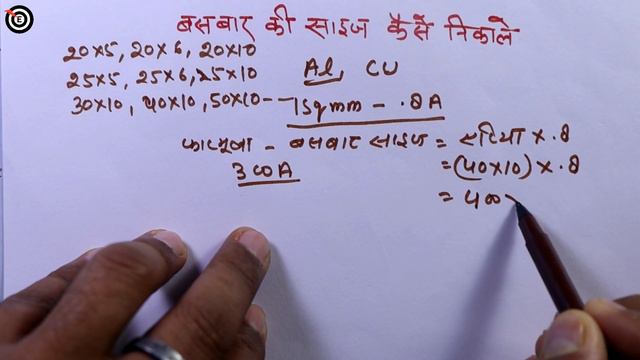 E
बसबार की साइज कैसे निकाले
20×5, 20×6, 20×10
25×5, 25×6, 25×10
Al, CU
30×10, 40×10, 50×10--
1sqmm - .8A
फार्मूला - बसबार साइज = एरिया × .8
300A
= (40×10) × .8
= 400 ×